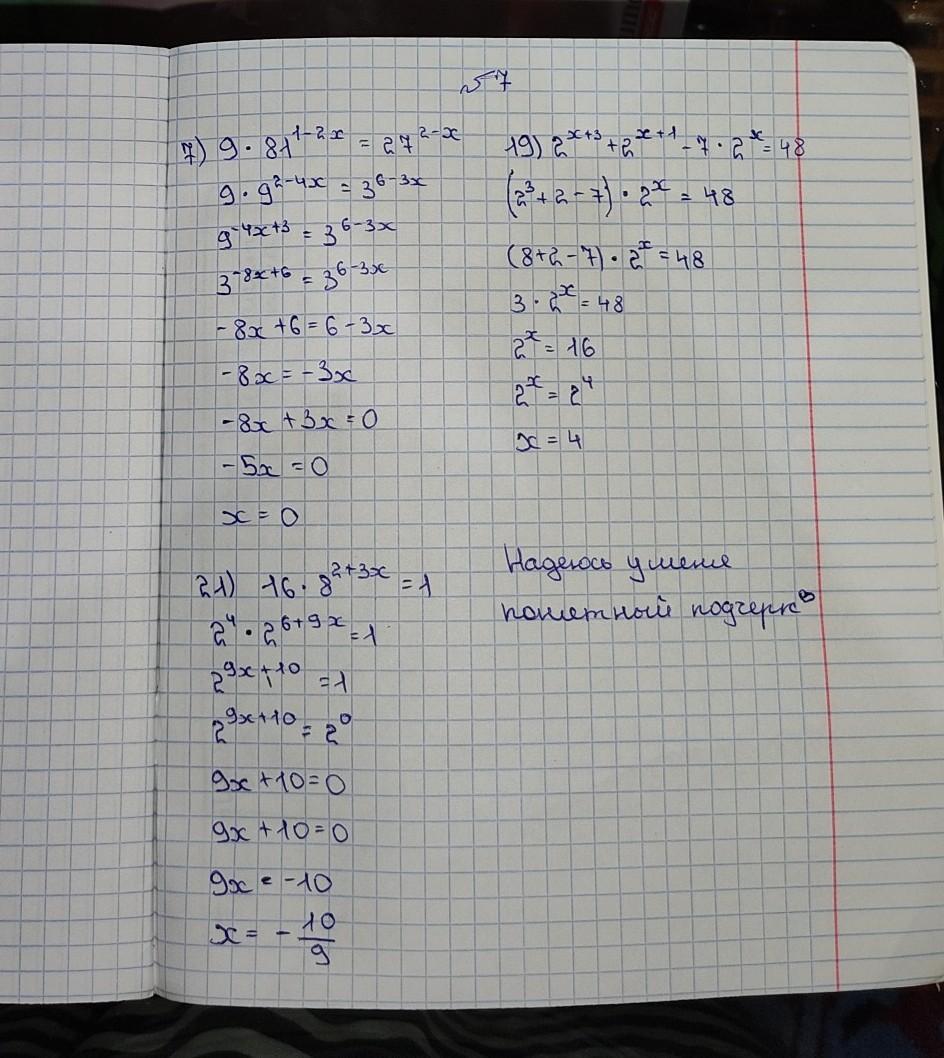 №7
7) 9 · 81^{1-2x} = 27^{2-x}
9 · 9^{2-4x} = 3^{6-3x}
9^{-4x+3} = 3^{6-3x}
3^{-8x+6} = 3^{6-3x}
-8x + 6 = 6 - 3x
-8x = -3x
-8x + 3x = 0
-5x = 0
x = 0
19) 2^{x+3} + 2^{x+1} - 7 · 2^{x} = 48
(2^{3} + 2 - 7) · 2^{x} = 48
(8 + 2 - 7) · 2^{x} = 48
3 · 2^{x} = 48
2^{x} = 16
2^{x} = 2^{4}
x = 4
21) 16 · 8^{2+3x} = 1
2^{4} · 2^{6+9x} = 1
2^{9x+10} = 1
2^{9x+10} = 2^{0}
9x + 10 = 0
9x + 10 = 0
9x = -10
x = - \frac{10}{9}
Надеюсь у меня
понятный подчерк